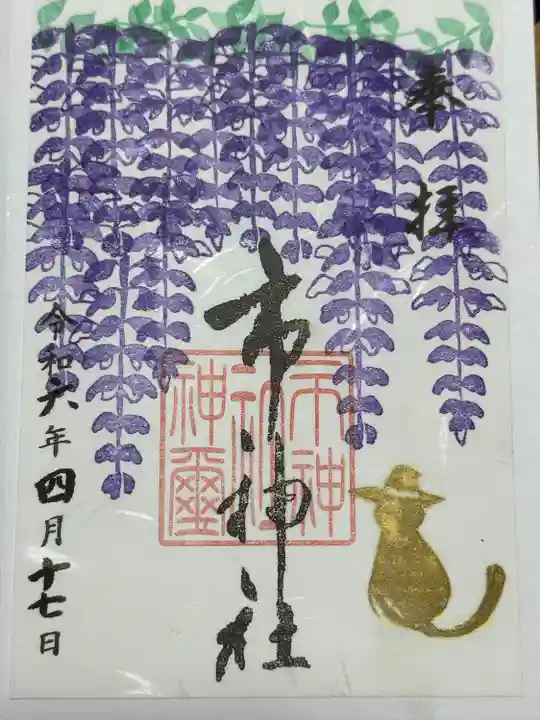 奉拝
市神社
市神
社
神璽
令和六年四月十七日